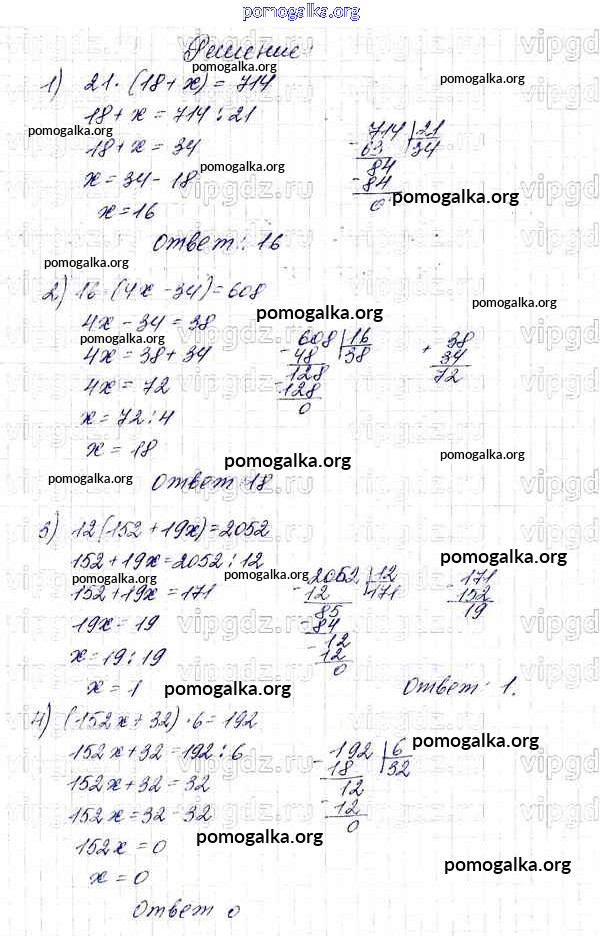 pomogalka.org
Решение:
pomogalka.org
1) 21 · (18 + x) = 714
pomogalka.org
18 + x = 714 : 21
pomogalka.org
714 | 21
18 + x = 34
- 63 34
pomogalka.org
84
x = 34 - 18
- 84
pomogalka.org
0
x = 16
Ответ: 16
pomogalka.org
2) 16 · (4x - 34) = 608
pomogalka.org
4x - 34 = 38
pomogalka.org
608 | 16
+ 38
4x = 38 + 34
- 48 38
34
128
72
4x = 72
- 128
0
x = 72 : 4
x = 18
pomogalka.org
pomogalka.org
pomogalka.org
Ответ 18
3) 12(152 + 19x) = 2052
152 + 19x = 2052 : 12
pomogalka.org
pomogalka.org
pomogalka.org
2052 | 12
- 171
152 + 19x = 171
- 12 171
152
85
19
19x = 19
- 84
12
x = 19 : 19
- 12
0
x = 1
pomogalka.org
Ответ 1.
4) (152x + 32) · 6 = 192
pomogalka.org
152x + 32 = 192 : 6
192 | 6
- 18 32
152x + 32 = 32
12
152x = 32 - 32
- 12
0
pomogalka.org
152x = 0
pomogalka.org
x = 0
Ответ 0
vipgdz.ru